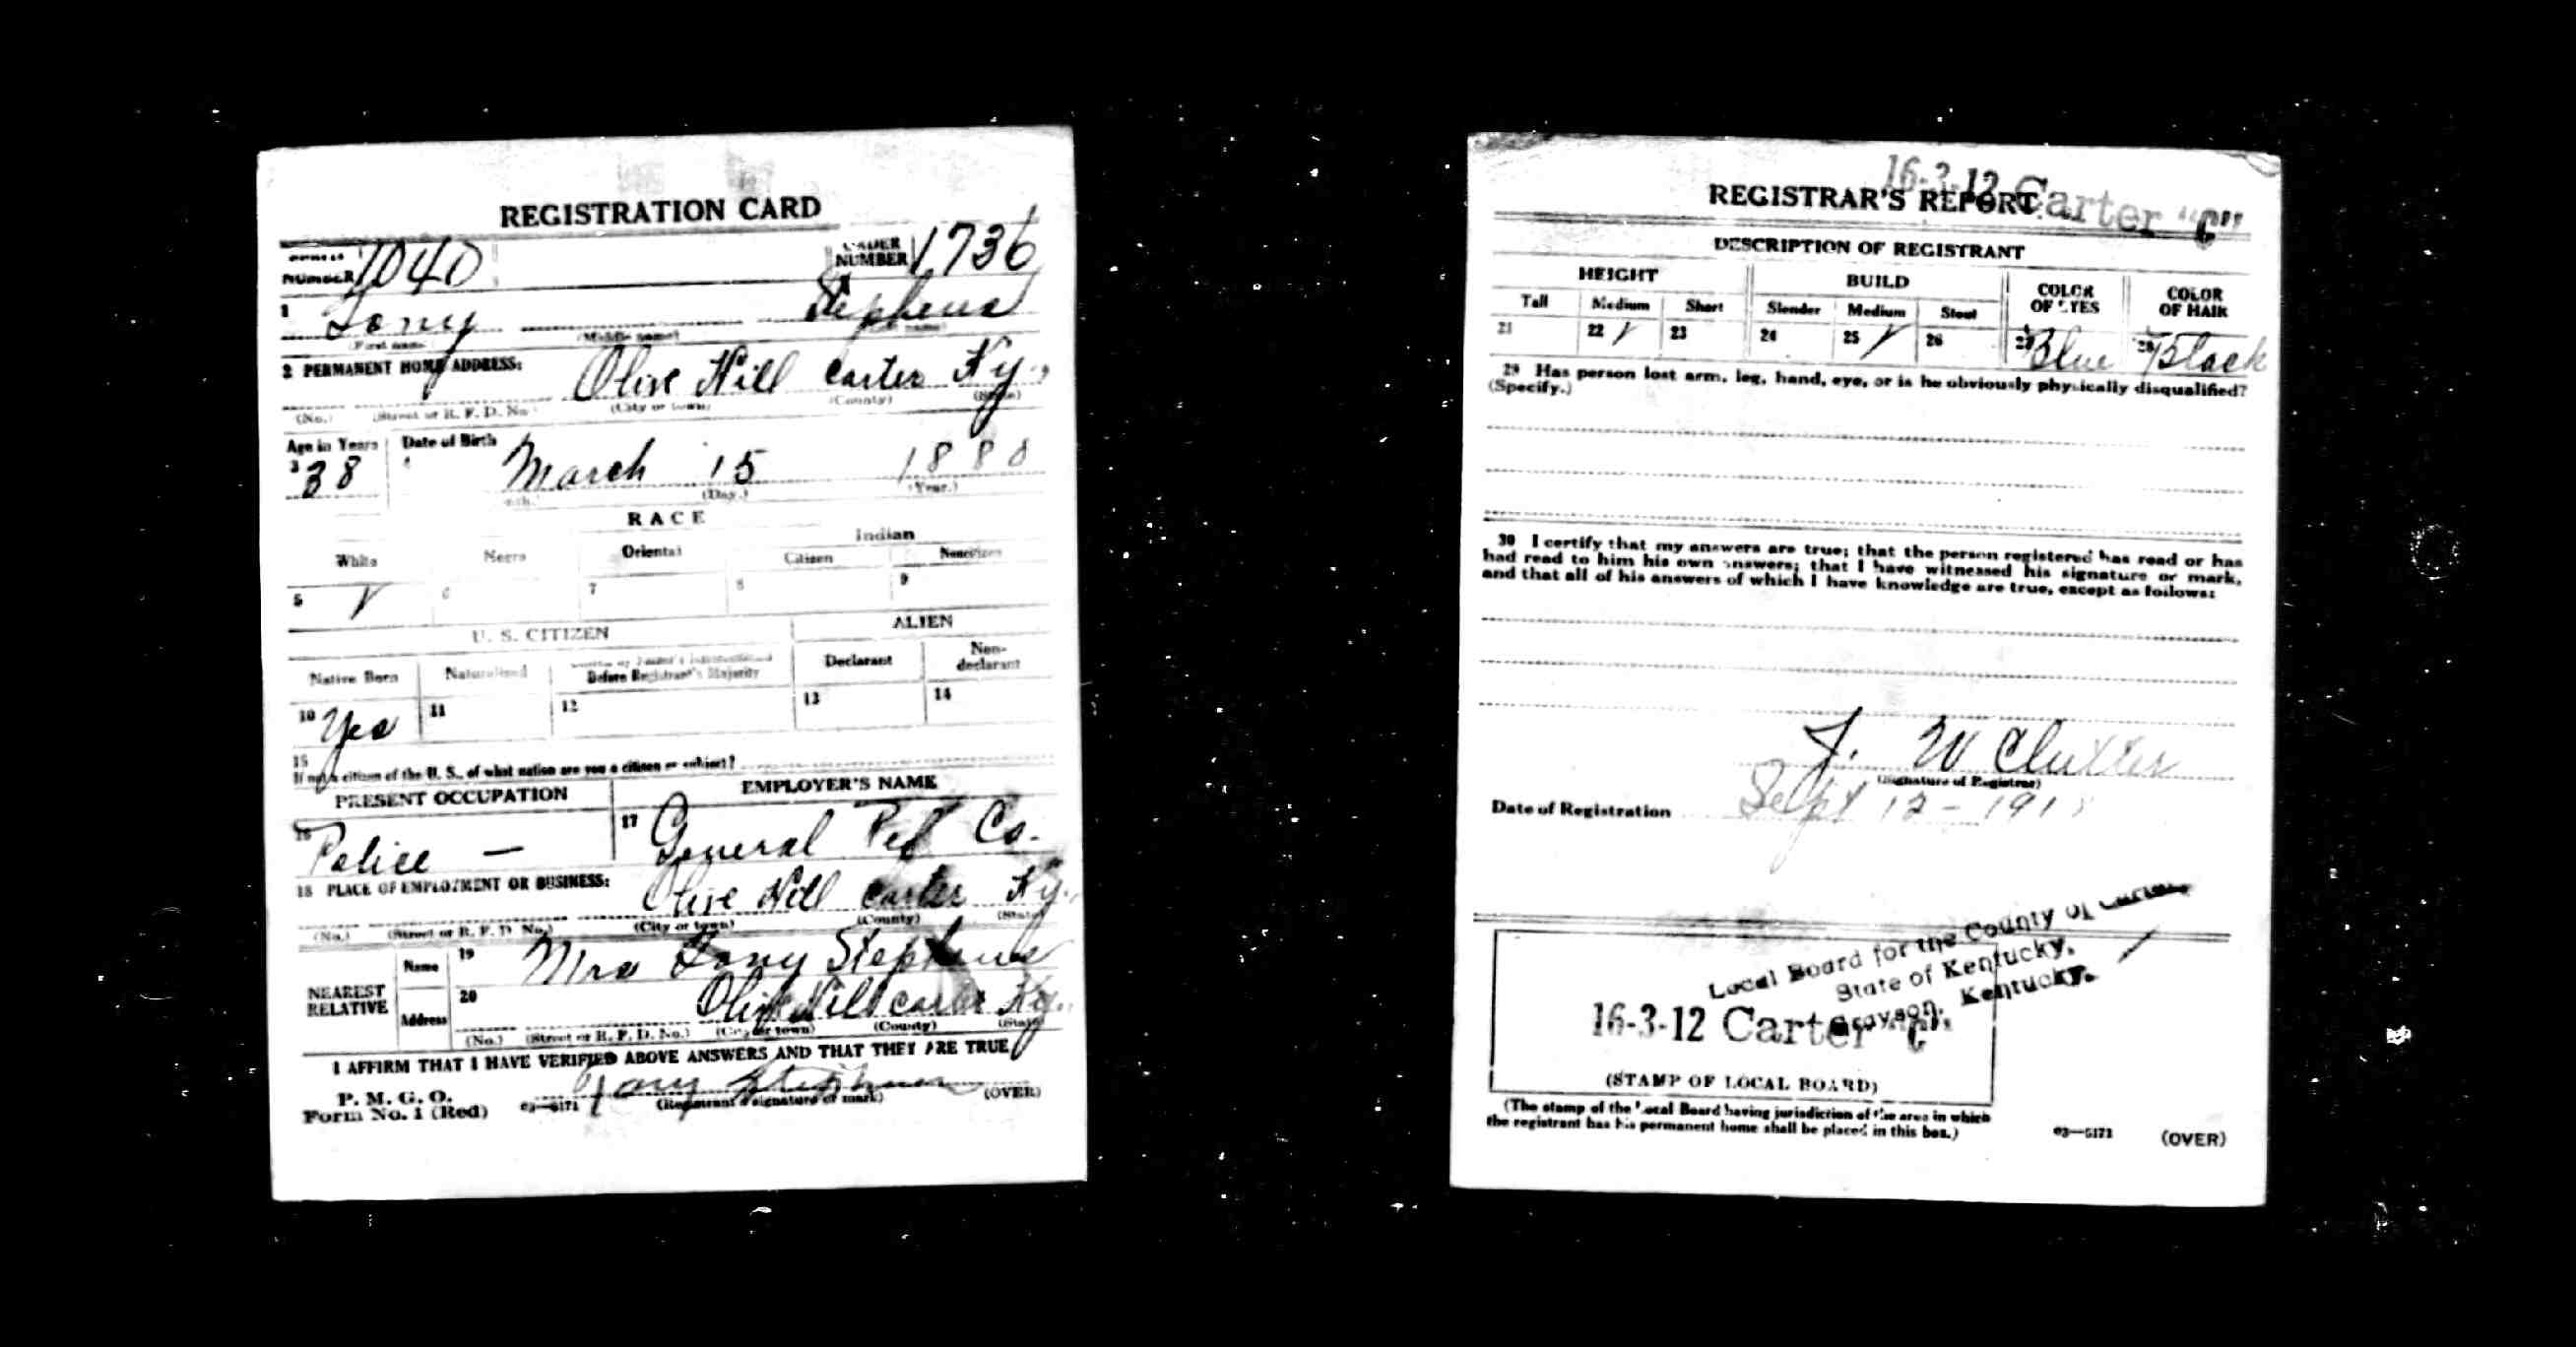 REGISTRATION CARD
NUMBER 1040 ORDER NUMBER 1736
1 Tony Stephens
(First name) (Middle name) name)
2 PERMANENT HOME ADDRESS:
Olive Hill Carter Ky.
(No.) (Street or R. F. D. No.) (City or town) (County) (State)
Age in Years Date of Birth
3 38 4 March 15 1880
(Day.) (Year.)
RACE
White Negro Oriental Indian
Citizen Noncitizen
5 ✓ 6 7 8 9
U. S. CITIZEN ALIEN
Native Born Naturalized Citizen by Father's Naturalization Before Registrant's Majority Declarant Non-declarant
10 Yes 11 12 13 14
15 If not a citizen of the U. S., of what nation are you a citizen or subject?
PRESENT OCCUPATION EMPLOYER'S NAME
16 Police — 17 General Ref Co.
18 PLACE OF EMPLOYMENT OR BUSINESS:
Olive Hill Carter Ky.
(No.) (Street or R. F. D. No.) (City or town) (County) (State)
NEAREST RELATIVE
Name 19 Mrs Tony Stephens
Address 20 Olive Hill Carter Ky.
(No.) (Street or R. F. D. No.) (City or town) (County) (State)
I AFFIRM THAT I HAVE VERIFIED ABOVE ANSWERS AND THAT THEY ARE TRUE
P. M. G. O.
Form No. 1 (Red) 03—6171 Tony Stephens (OVER)
(Registrant's signature or mark)
16-3-12 Carter "C"
REGISTRAR'S REPORT
DESCRIPTION OF REGISTRANT
HEIGHT BUILD COLOR OF EYES COLOR OF HAIR
Tall Medium Short Slender Medium Stout
21 22 ✓ 23 24 25 ✓ 26 27 Blue 28 Black
29 Has person lost arm, leg, hand, eye, or is he obviously physically disqualified?
(Specify.)
30 I certify that my answers are true; that the person registered has read or has
had read to him his own answers; that I have witnessed his signature or mark,
and that all of his answers of which I have knowledge are true, except as follows:
J. W Clutter
(Signature of Registrar)
Date of Registration Sept 12 - 1918
Local Board for the County of Carter,
State of Kentucky,
Grayson, Kentucky.
16-3-12 Carter "C"
(STAMP OF LOCAL BOARD)
(The stamp of the Local Board having jurisdiction of the area in which
the registrant has his permanent home shall be placed in this box.)
03—6171 (OVER)